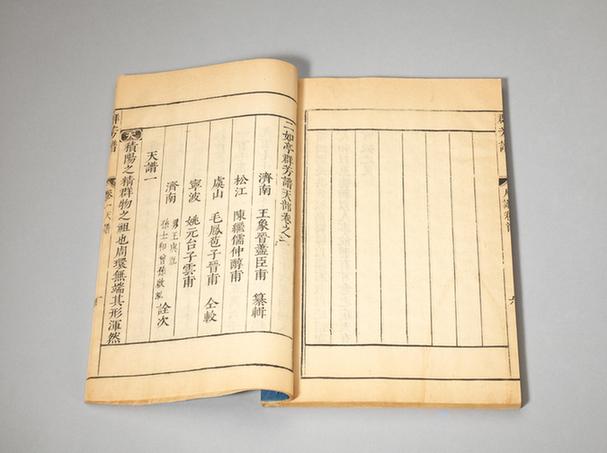 群芳譜
二如亭群芳譜天部卷之一
濟南 王象晉藎臣甫 纂輯
松江 陳繼儒仲醇甫
虞山 毛鳳苞子晉甫 仝較
寧波 姚元台子雲甫
濟南 男王 孫士和曾孫啟 詮次
天譜一
天 積陽之精群物之祖也周環無端其形渾然
群芳譜 卷一天譜